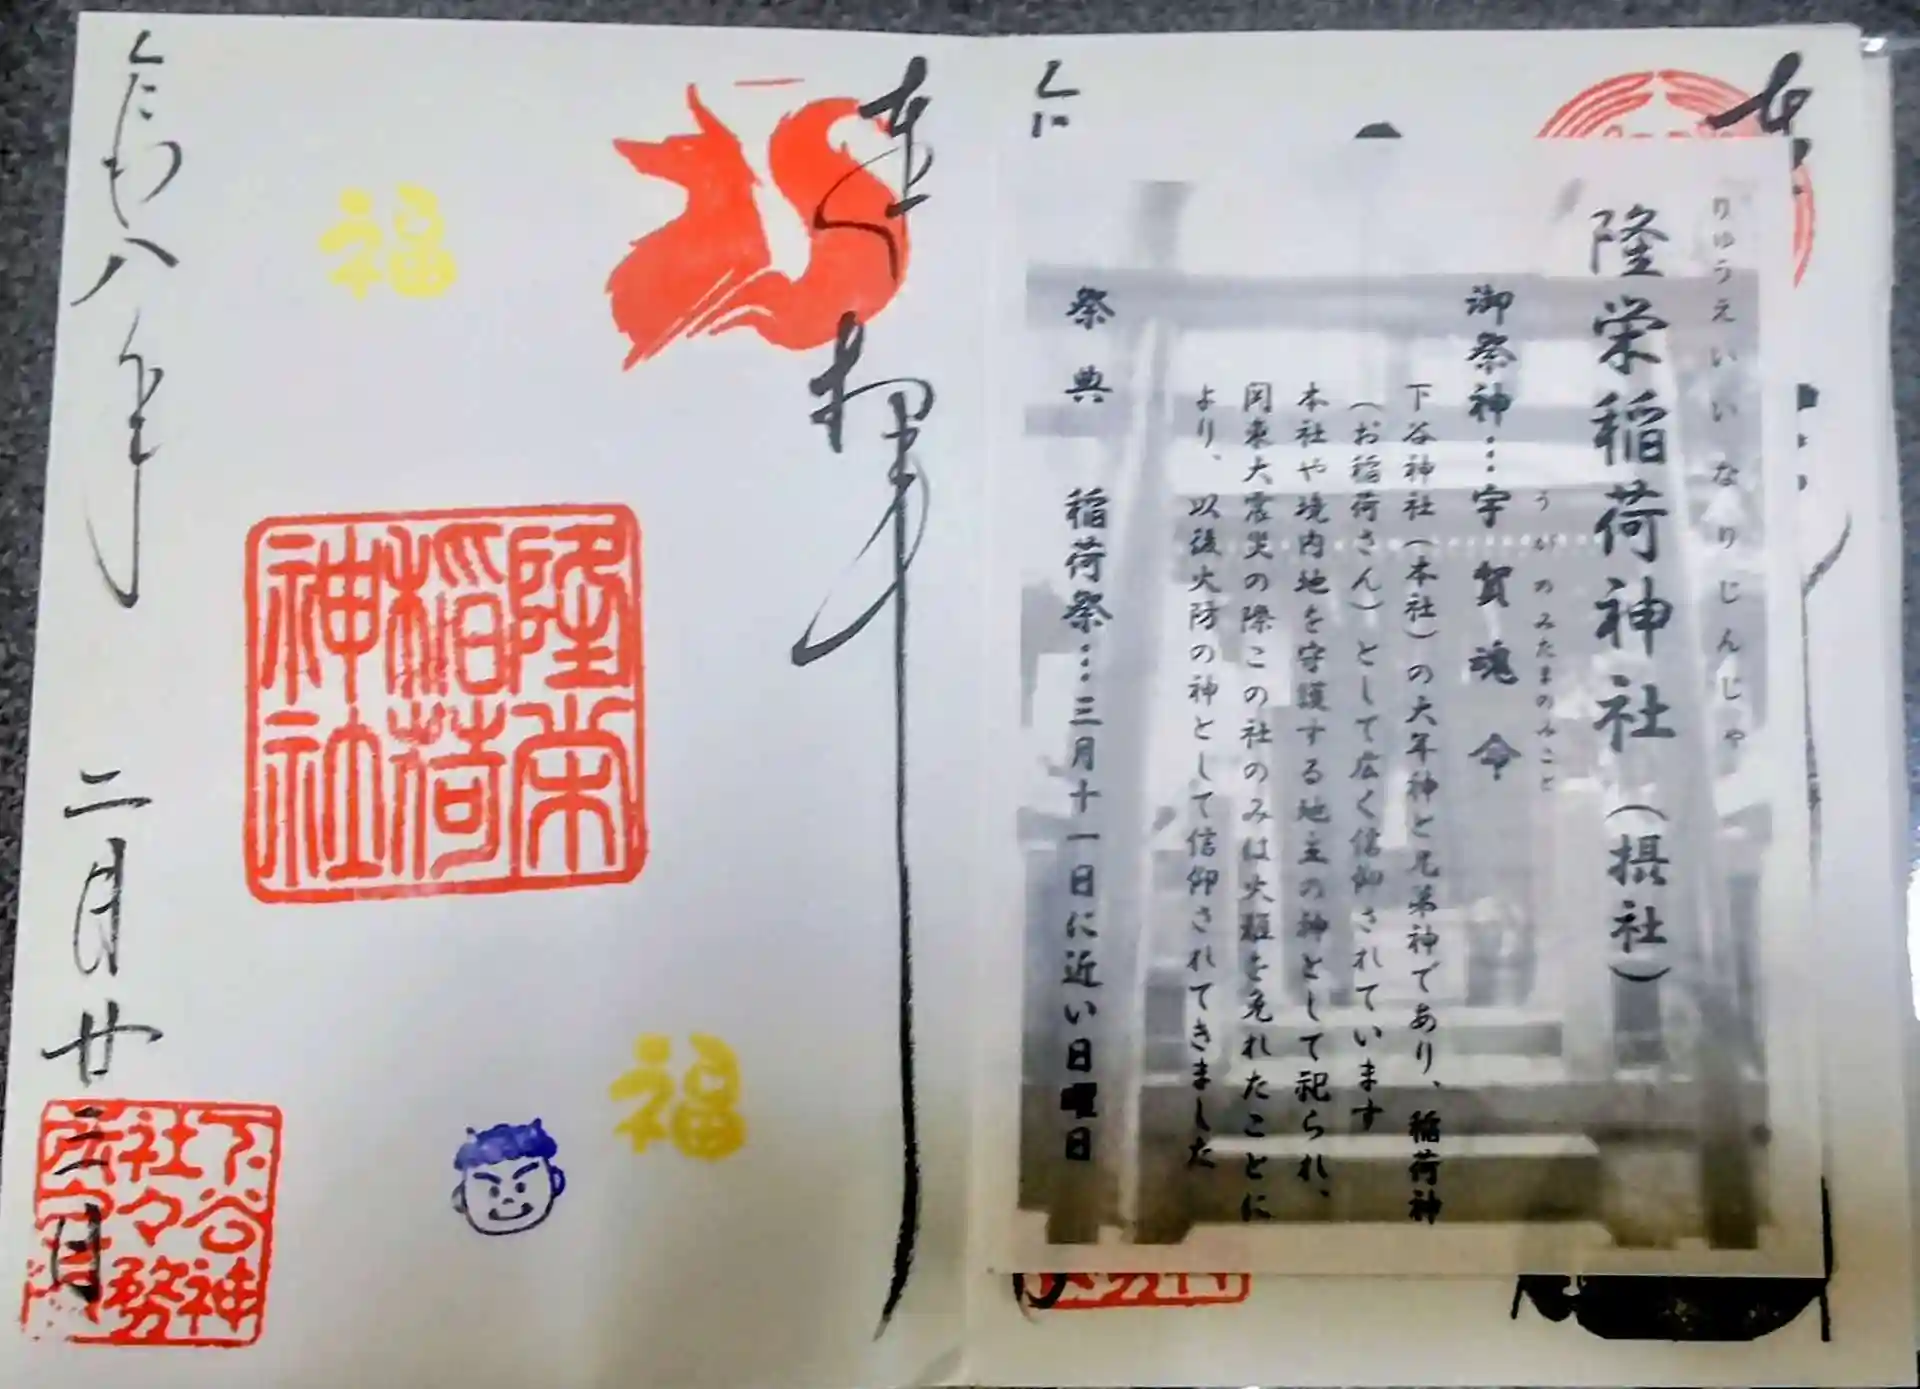 りゅうえいいなりじんじゃ
隆栄稲荷神社(摂社)
うがのみたまのみこと
御祭神…宇賀魂命
下谷神社(本社)の大年神と兄弟神であり、稲荷神
(お稲荷さん)として広く信仰されています
本社や境内地を守護する地主の神として祀られ、
関東大震災の際この社のみは火難を免れたことに
より、以後火防の神として信仰されてきました
祭典 稲荷祭…三月十一日に近い日曜日
奉拝
福
隆栄
稲荷
神社
福
二月廿三日
下谷神
社々務